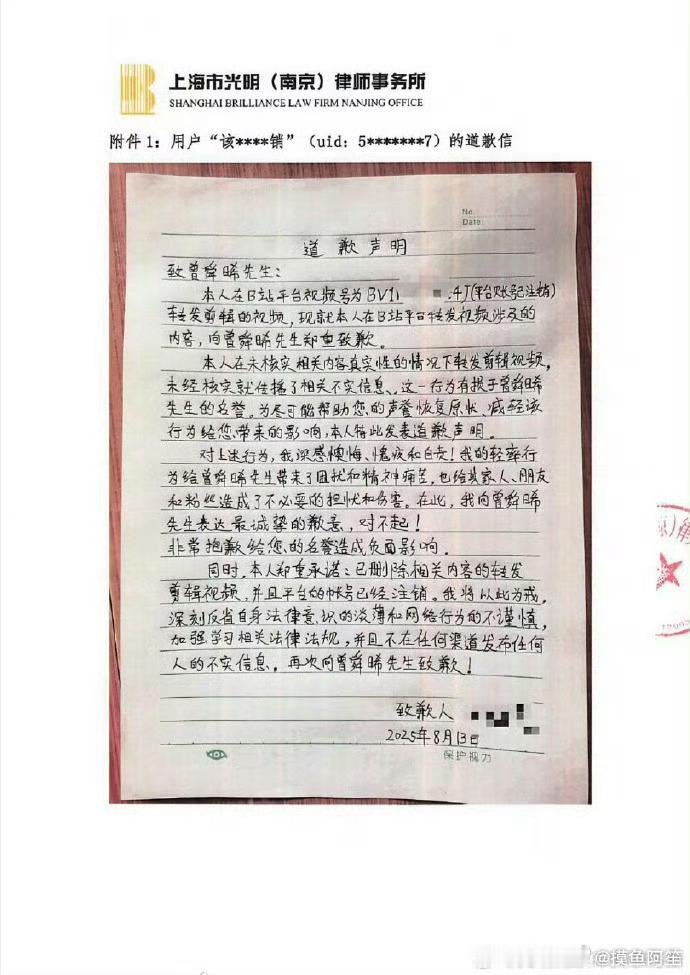 上海市光明（南京）律师事务所
SHANGHAI BRILLIANCE LAW FIRM NANJING OFFICE
附件1：用户“该****销”（uid：5*******7）的道歉信
No.
Date.
道歉声明
致曾舜晞先生：
本人在B站平台视频号为BV1 4J(平台账号已注销)
转发剪辑的视频，现就本人在B站平台转发视频涉及的
内容，向曾舜晞先生郑重致歉。
本人在未核实相关内容真实性的情况下转发剪辑视频，
未经核实就传播了相关不实信息、这一行为有损于曾舜晞
先生的名誉。为尽可能帮助您的声誉恢复原状、减轻该
行为给您带来的影响，本人特此发表道歉声明。
对上述行为，我深感懊悔、愧疚和自责！我的轻率行
为给曾舜晞先生带来了困扰和精神痛苦，也给其家人、朋友
和粉丝造成了不必要的担忧和伤害。在此，我向曾舜晞
先生表达最诚挚的歉意，对不起！
非常抱歉给您的名誉造成负面影响。
同时，本人郑重承诺：已删除相关内容的转发
剪辑视频，并且平台的帐号已经注销。我将以此为戒，
深刻反省自身法律意识的淡薄和网络行为的不谨慎，
加强学习相关法律法规，并且不在任何渠道发布任何
人的不实信息。再次向曾舜晞先生致歉！
致歉人
2025年8月13日
保护视力
@摸鱼阿笙